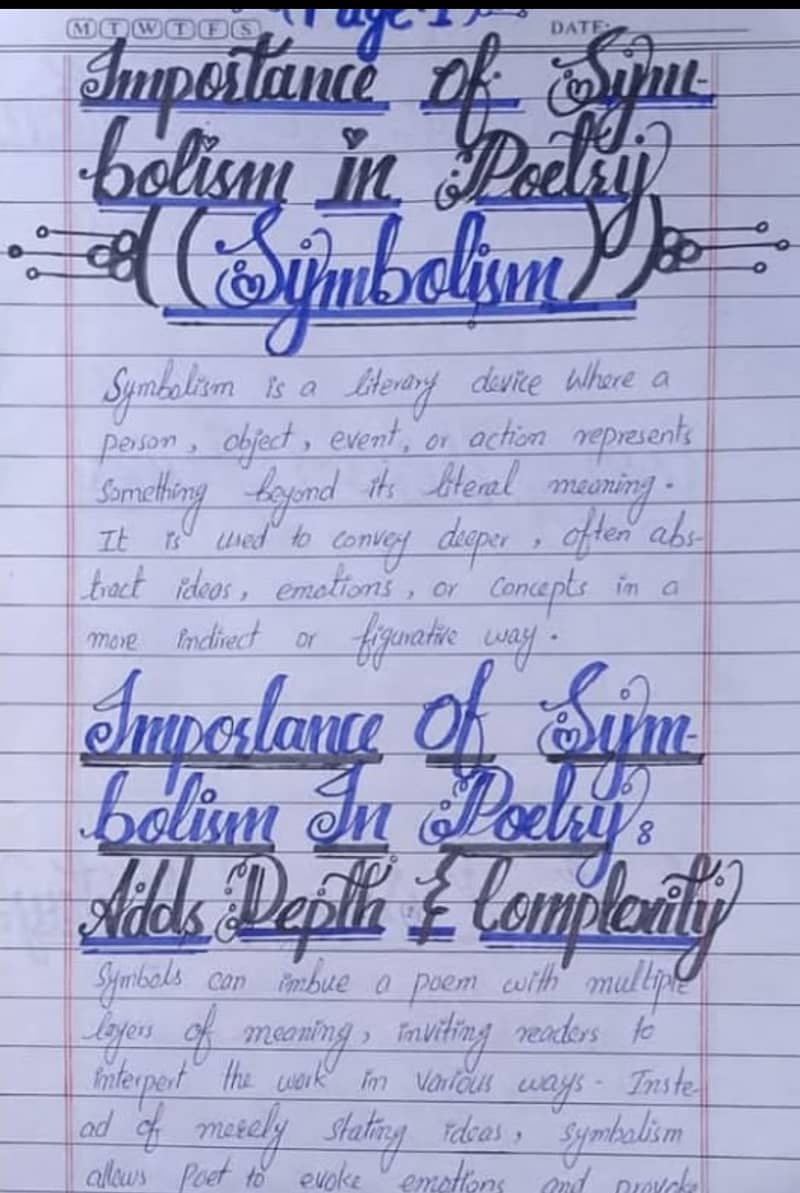 (Page-1)
M T W T F S
DATE:
Importance of Sym-
bolism in Poetry
(Symbolism)
Symbolism is a literary device Where a
person, object, event, or action represents
Something beyond its literal meaning.
It is used to convey deeper, often abs-
tract ideas, emotions, or Concepts in a
more indirect or figurative way.
Importance Of Sym-
bolism In Poetry:
Adds Depth & Complexity
Symbols can imbue a poem with multiple
layers of meaning, inviting readers to
interpert the work in various ways- Inste-
ad of merely stating ideas, symbolism
allows Poet to evoke emotions and provoke